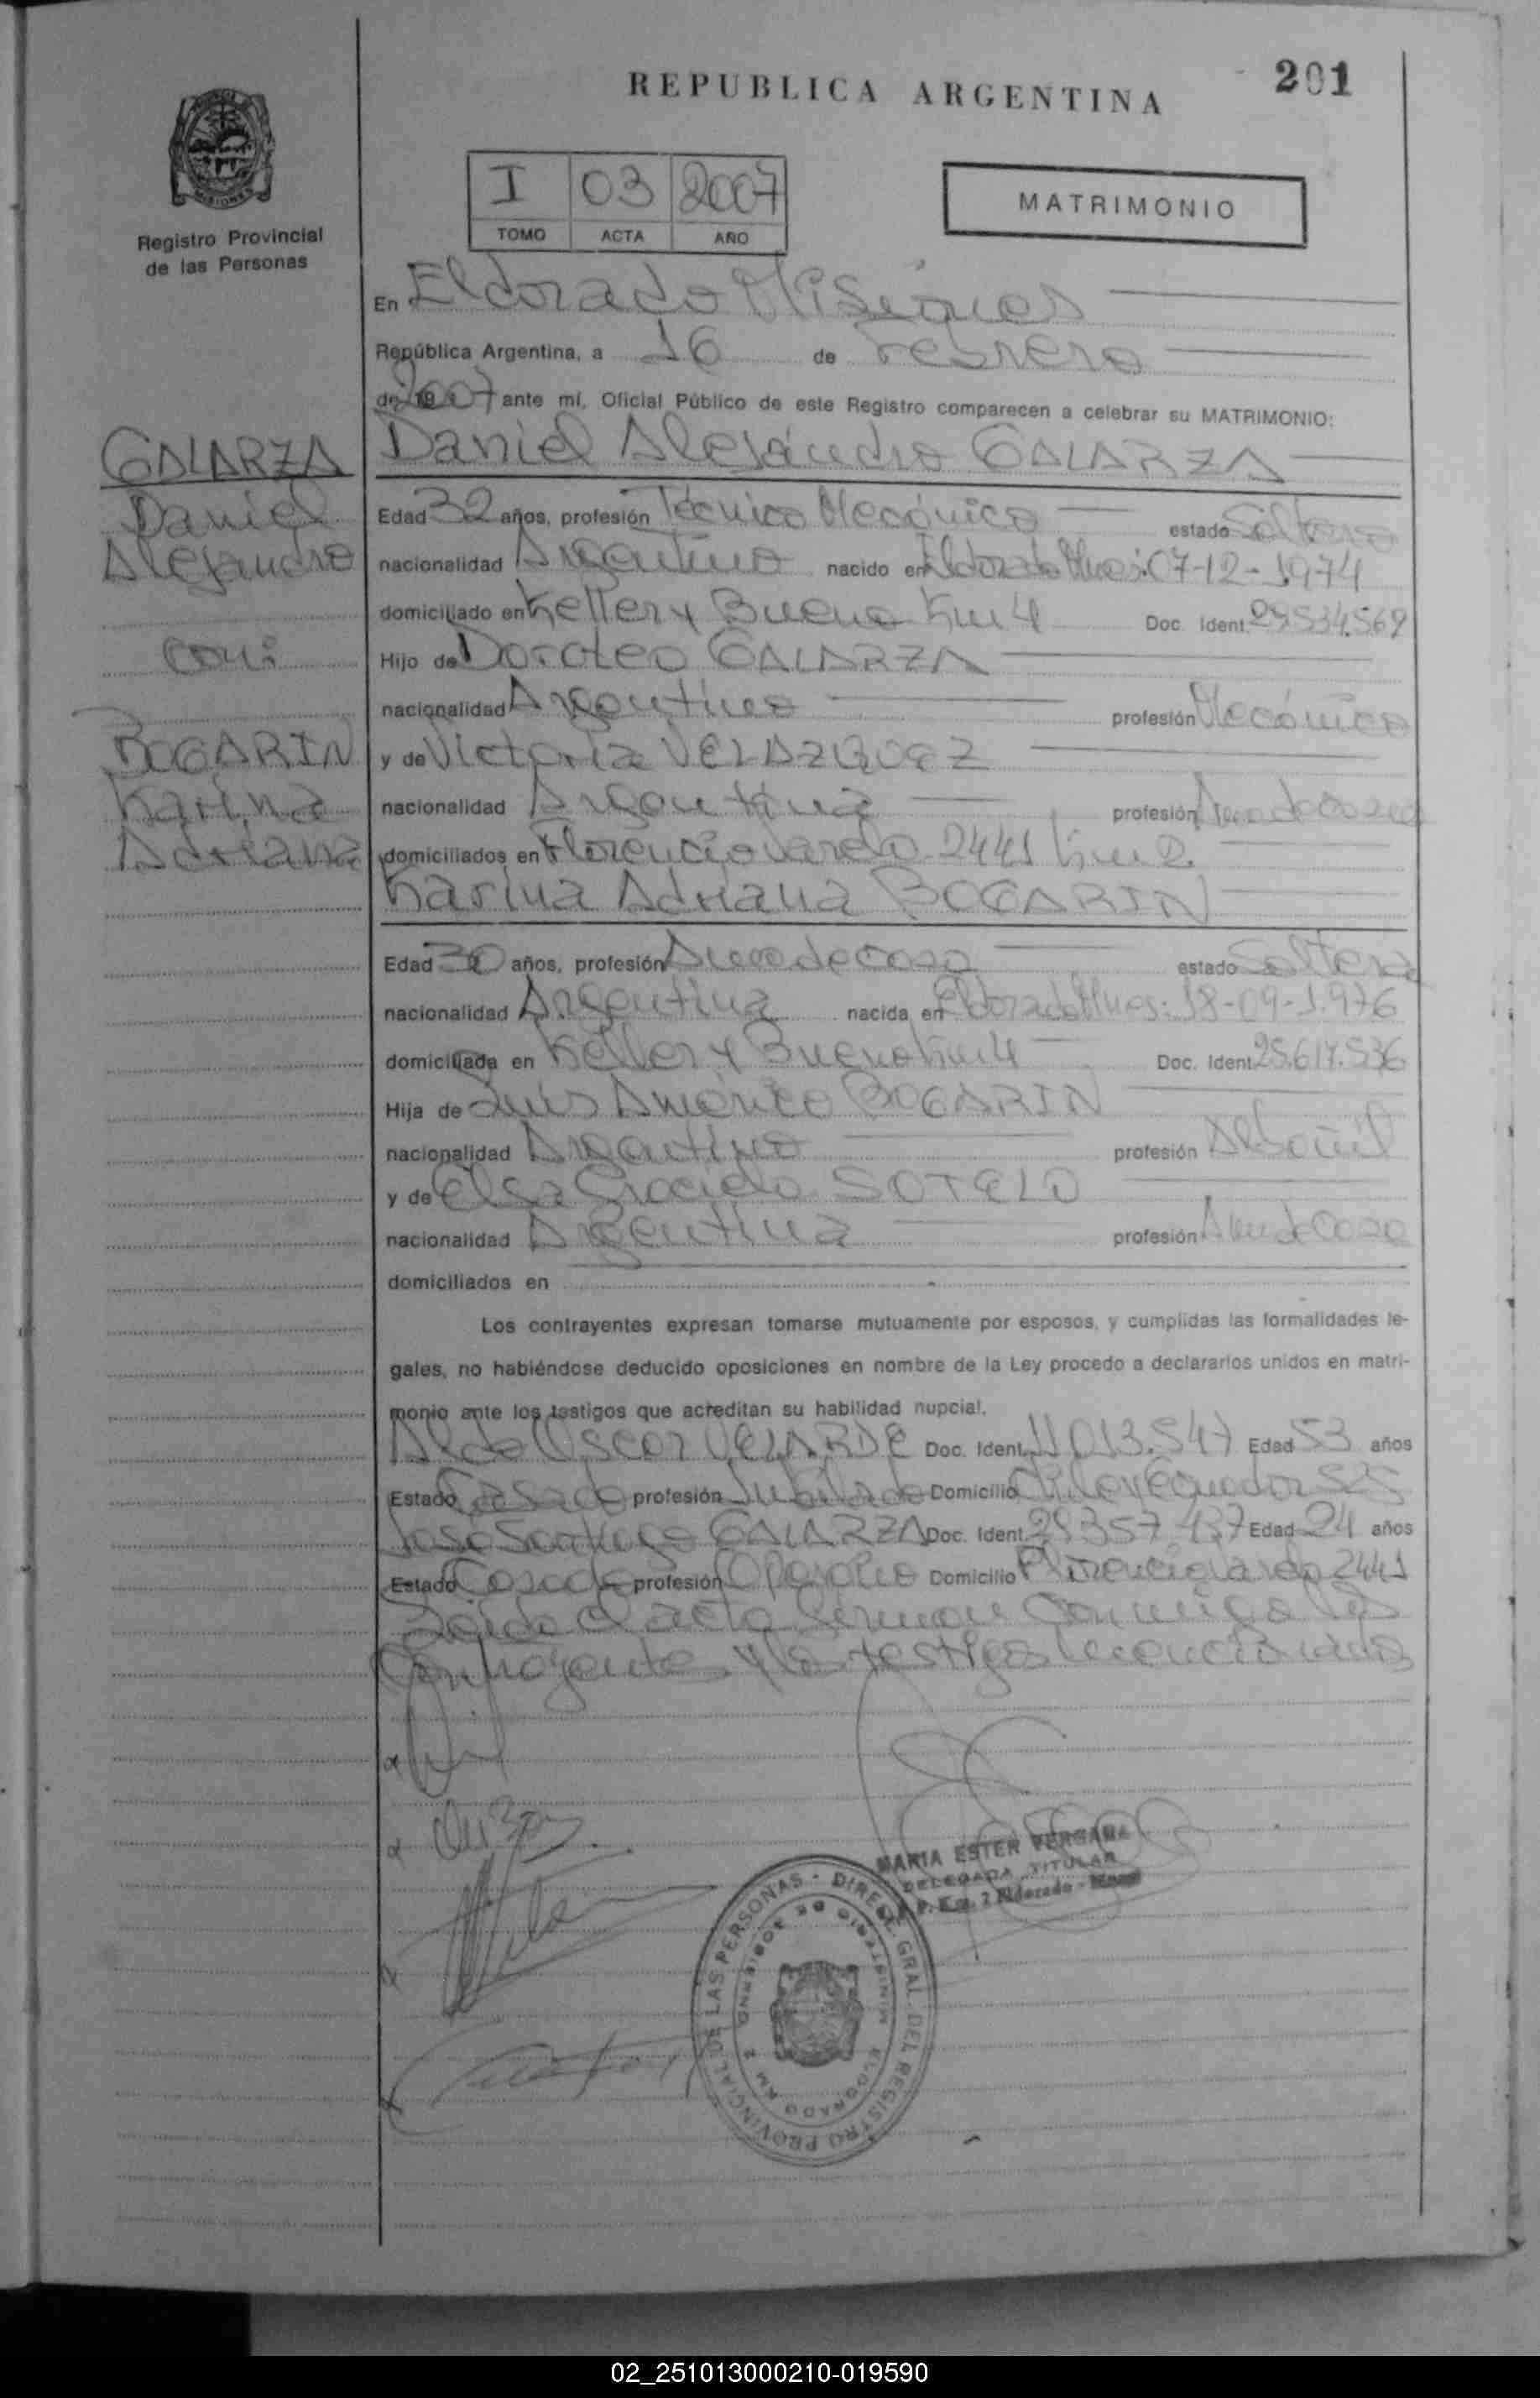 REPUBLICA ARGENTINA
201
MISIONES
Registro Provincial
de las Personas
I 03 2007
TOMO ACTA AÑO
MATRIMONIO
En Eldorado Misiones
República Argentina, a 16 de Febrero
de 2007 ante mí, Oficial Público de este Registro comparecen a celebrar su MATRIMONIO:
GALARZA
Daniel
Alejandro
con:
BOGARIN
Karina
Adriana
Daniel Alejandro GALARZA
Edad 32 años, profesión Técnico Mecánico estado Soltero
nacionalidad Argentino nacido en Eldorado Mnes: 07-12-1974
domiciliado en Keller y Bueno Km 4 Doc. Ident. 29.534.569
Hijo de Doroteo GALARZA
nacionalidad Argentino profesión Mecánico
y de Victoria VELAZQUEZ
nacionalidad Argentina profesión Ama de Casa
domiciliados en Florencio Varela 2441 Km 2.
Karina Adriana BOGARIN
Edad 30 años, profesión Ama de Casa estado Soltera
nacionalidad Argentina nacida en Eldorado Mnes: 18-09-1.976
domiciliada en Keller y Bueno Km 4 Doc. Ident. 25.617.536
Hija de Luis Américo BOGARIN
nacionalidad Argentino profesión Albañil
y de Elsa Graciela SOTELO
nacionalidad Argentina profesión Ama de Casa
domiciliados en
Los contrayentes expresan tomarse mutuamente por esposos, y cumplidas las formalidades le-
gales, no habiéndose deducido oposiciones en nombre de la Ley procedo a declararlos unidos en matri-
monio ante los testigos que acreditan su habilidad nupcial.
Aldo Oscar VELARDE Doc. Ident. 11.013.547 Edad 53 años
Estado Casado profesión Jubilado Domicilio Chile y Ecuador
José Santiago GALARZA Doc. Ident. 29357 437 Edad 24 años
Estado Casado profesión Operario Domicilio Florencio Varela 2441
Leída el acta firman conmigo los
Contrayentes y los testigos mencionados
MARIA ESTER VERGARA
DELEGADA TITULAR
R. P. Km. 2 Eldorado - Mnes.
DIREC. GRAL. DEL REGISTRO PROVINCIAL DE LAS PERSONAS
MINISTERIO DE GOBIERNO
ELDORADO KM 2
02_251013000210-019590